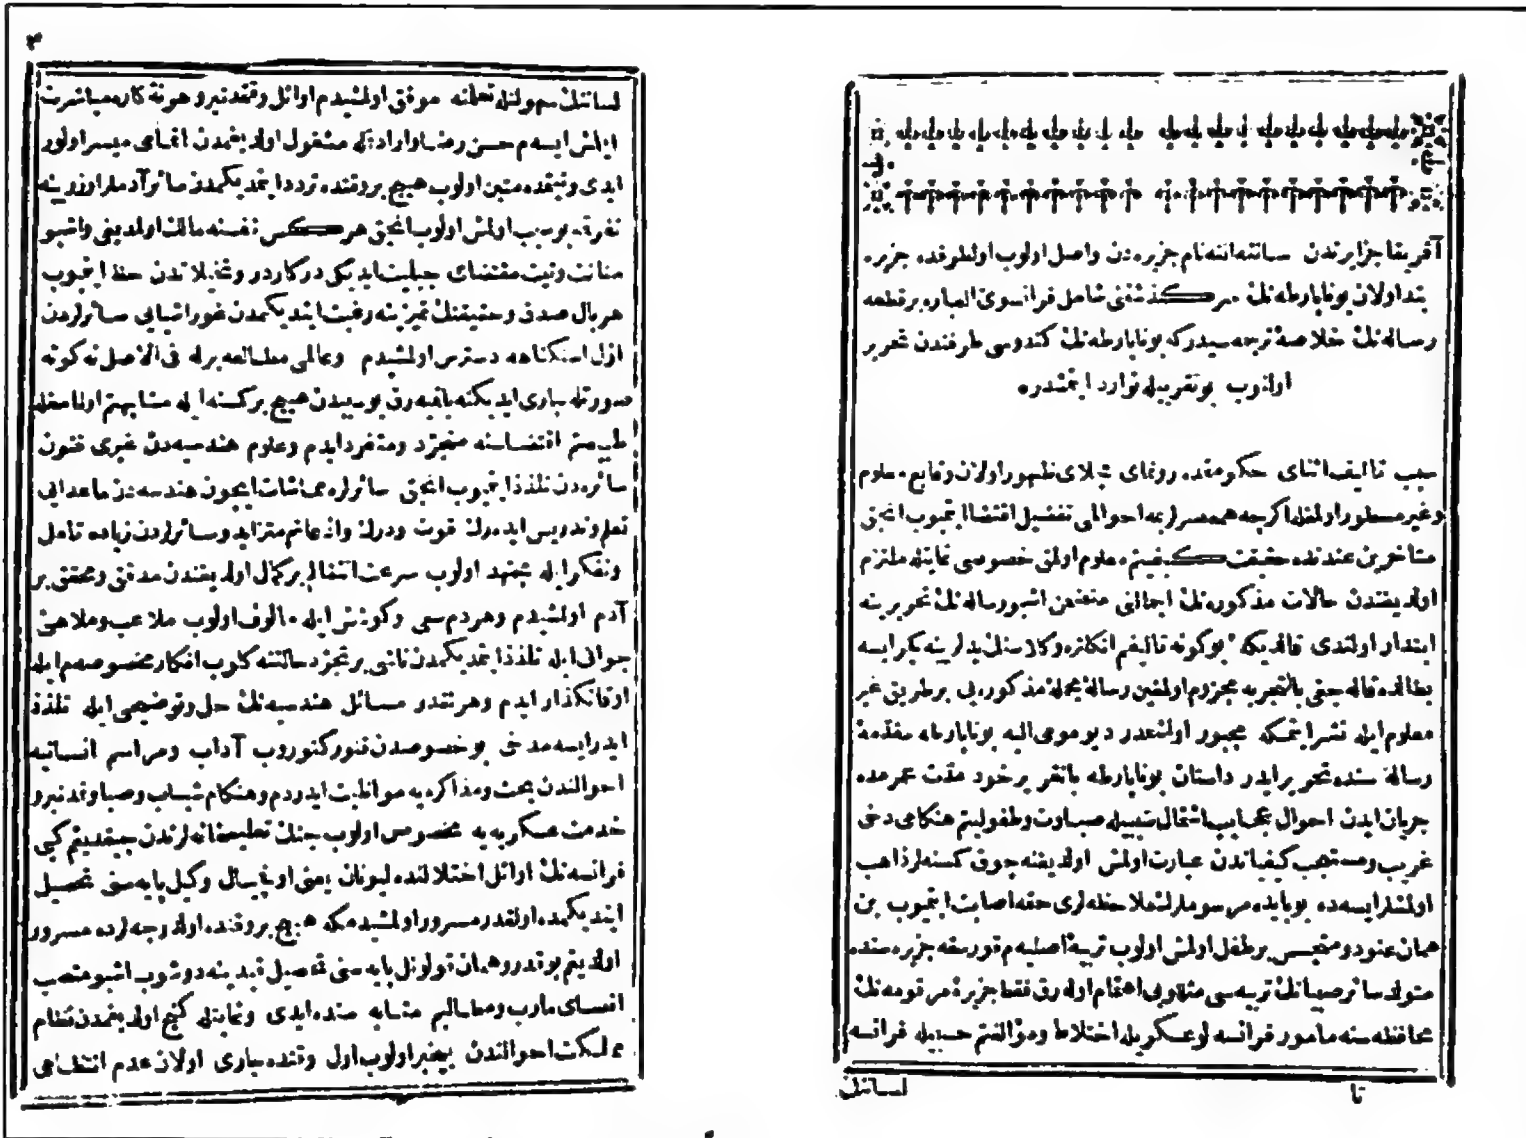 آفریقا جزایرندن سانته النه نام جزیره دن واصل اولوب اولطرفده جزیره
بند اولان بوناپارطه نك سرگذشتنی شامل فرانسوی العباره برقطعه
رساله نك خلاصهٔ ترجمه سیدرکه بوناپارطه نك کندوسی طرفندن تحریر
اولنوب بو تقریبله توارد ایتمشدر
سبب تألیف اثنای حکومتمده رونمای مجلای ظهور اولان وقایع معلوم
وغیر مسطور اولمغله اکرچه هم عصرلریمه احوالمی تفصیل اقتضا ایتمیوب انجق
متأخرین عندنده حقیقت کیفیتم معلوم اولمق خصوصی نمایتله ملتزم
اولدیغندن حالات مذکوره نك اجمالنی متضمن اشبو رساله نك تحریرینه
ابتدار اولندی قالدیکه بوکونه تألیفم انکلتره وکلاسنك یدلرینه کیرایسه
بطالده قاله جغی بالتجربه مجزوم اولمغین رسالهٔ مجملهٔ مذکوره یی برطریق غیر
معلوم ایله نشر ایتمکه مجبور اولنمشدر دیو مومی الیه بوناپارطه مقدمهٔ
رساله سنده تحریر ایدر داستان بوناپارطه بانفر برخود مدت عمرمده
جریان ایدن احوال عجایب اشتمال سببیله صباوت وطفولیتم هنکامی دخی
غریب ومستعجب کیفیاتدن عبارت اولمش اولدیغنه چوق کسنه لر ذاهب
اولمشلرایسه ده بوبابده مرسوملرك ملاحظه لری حقه اصابت ایتمیوب بن
همان عنود ومتجسس برطفل اولمش اولوب تربیهٔ اصلیه م قورسقه جزیره سنده
متولد سائر صبیانك تربیه سی مثللو بی اهتمام اوله رق فقط جزیرهٔ مرقومه نك
محافظه سنه مأمور فرانسه لو عسکریله اختلاط وموالفتم حسبیله فرانسه
تا
لسانك
٣
لسانك سهولتله تعلمنه موفق اولمشیدم اوائل وقتمدنبرو هونه کاره مباشرت
ایتمش ایسه م حسن رضا واراده ایله مشغول اولدیغمدن اتمامی میسر اولور
ایدی ونیتمده متین اولوب هیچ بر وقتده تردد ایتمدیکمدن سائر آدملر اوزرینه
تفرقم بوسبب اولمش اولوب انجق هرکس نفسنه مالك اولدیغی واشبو
متانت ونیت مقتضای جبلیت ایدیکی درکاردر وتخیلاتدن حظ ایتمیوب
هربال صدق وحقیقتك تمیزینه رغبت ایتدیکمدن غور اشیایی سائرلردن
اول استکناهه دسترس اولمشیدم وعالمی مطالعه برله فی الاصل نه کونه
صورتله جاری ایدیکنه باقیه رق بوسببدن هیچ برکسنه ایله مشابهتم اولمامغله
طبیعتم اقتضاسنه متجرد ومتفرد ایدم وعلوم هندسیه دن غیری فنون
سائره دن تلذذ ایتمیوب انجق سائرلره مماشات ایچون هندسه دن ماعدایی
تعلم وتدریس ایده رك قوت ودرك واذعانم متزاید وسائرلردن زیاده تأمل
وتفکر ایله مجتهد اولوب سرعت انتقالم برکمال اولدیغندن مدقق ومحقق بر
آدم اولمشیدم وهردم سعی وکوشش ایله مألوف اولوب ملاعب وملاهئ
جوانی ایله تلذذ ایتمدیکمدن ناشی بر تجرد حالتنه کلوب افکار مخصوصه م ایله
اوقاتکذار ایدم وهرنقدر مسائل هندسیه نك حل وتوضیحی ایله تلذذ
ایدر ایسه مدخی بوخصوصدن تنور کتوروب آداب ومراسم انسانیه
احوالندن بحث ومذاکره یه مواظبت ایدردم وهنکام شباب وصباوتمدنبرو
خدمت عسکریه یه مخصوص اولوب جنك تعلیمخانه لرندن چیقدیغم کبی
فرانسه نك اوائل اختلالنده لیوتنان یعنی اونباشی وکیل پایه سنی تحصیل
ایتدیکمده اولقدر مسرور اولمشیدمکه هیچ بر وقتده اولدرجه لرده مسرور
اولدیغم یوقدر وهمان قولونل پایه سنی تحصیل قیدینه دوشوب اشبو منصب
اقصای مارب ومطالبم مثابه سنده ایدی ونمایتله کنج اولدیغمدن نظام
مملکت احوالندن بیخبر اولوب اول وقتده جاری اولان عدم انتظامی